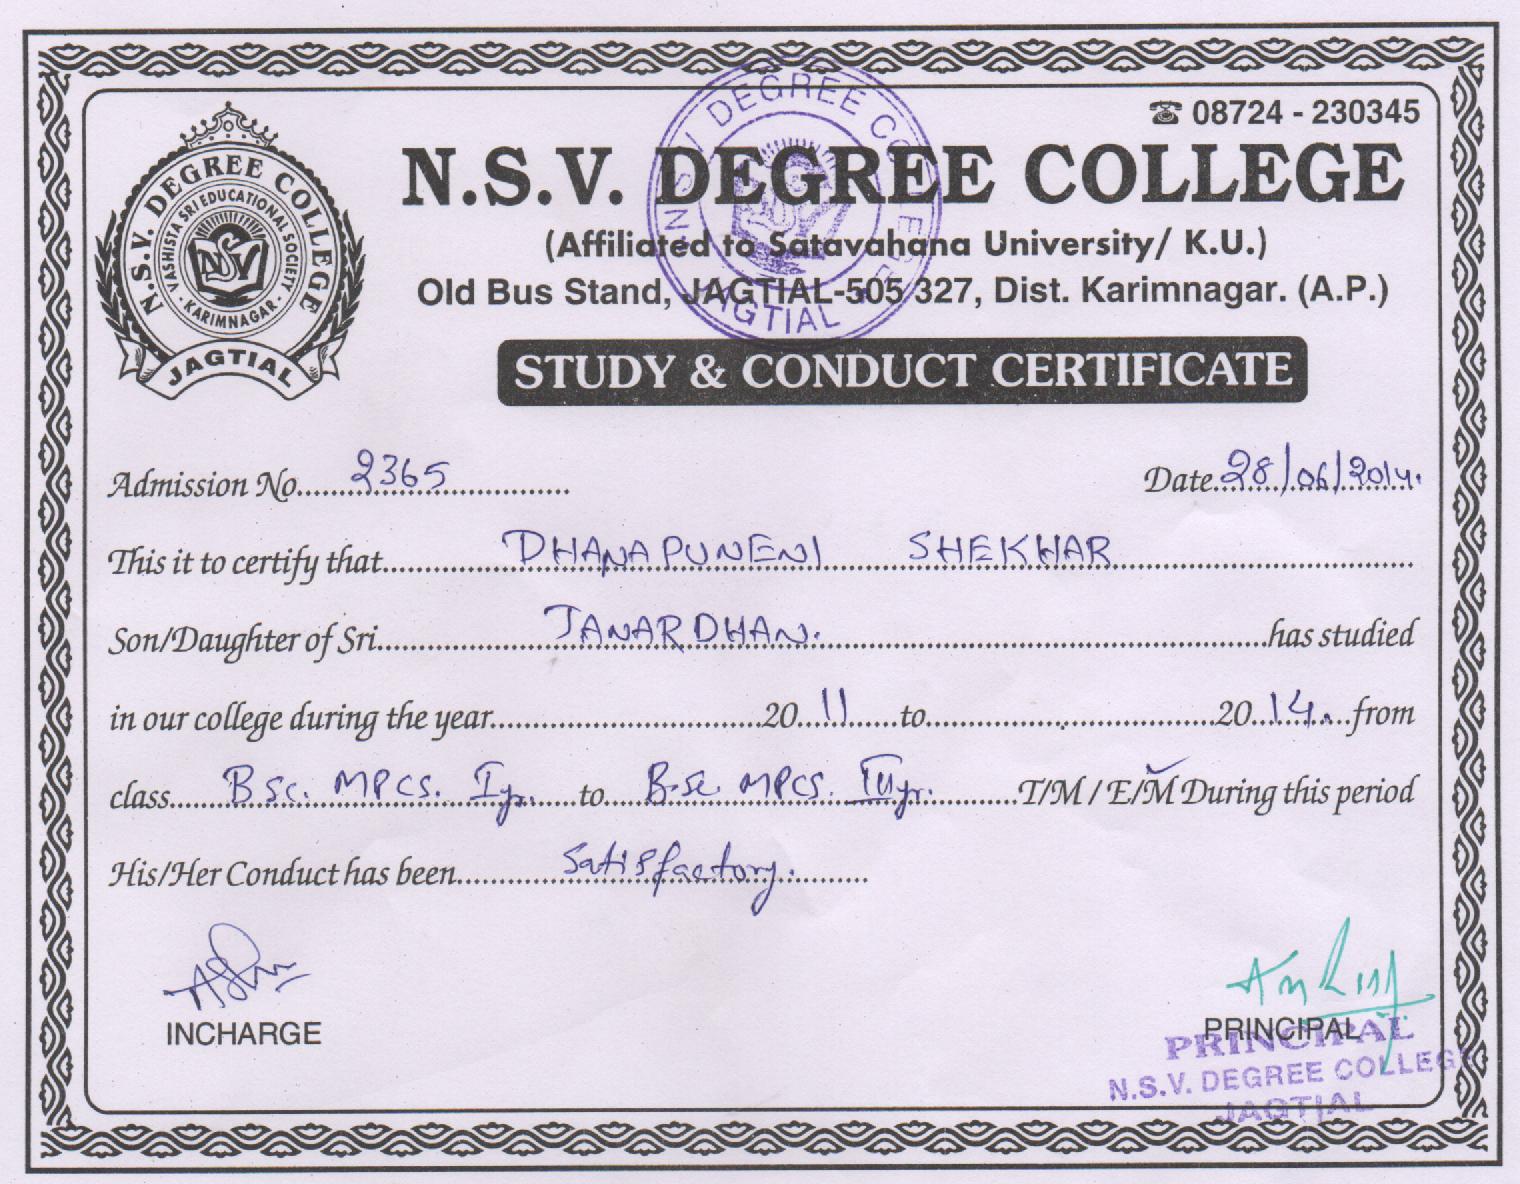 ☎ 08724 - 230345
N.S.V. DEGREE COLLEGE
VASHISTA SRI EDUCATIONAL SOCIETY
KARIMNAGAR
JAGTIAL
N.S.V. DEGREE COLLEGE
(Affiliated to Satavahana University/ K.U.)
Old Bus Stand, JAGTIAL-505 327, Dist. Karimnagar. (A.P.)
NSV DEGREE COLLEGE
JAGTIAL
STUDY & CONDUCT CERTIFICATE
Admission No. 2365 Date 28/06/2014.
This it to certify that DHANAPUNENI SHEKHAR
Son/Daughter of Sri JANARDHAN. has studied
in our college during the year 2011 to 2014. from
class B Sc. MPCS. I yr. to B.Sc MPCS. III yr. T/M / E/M During this period
His/Her Conduct has been Satisfactory.
INCHARGE PRINCIPAL
PRINCIPAL
N.S.V. DEGREE COLLEGE
JAGTIAL